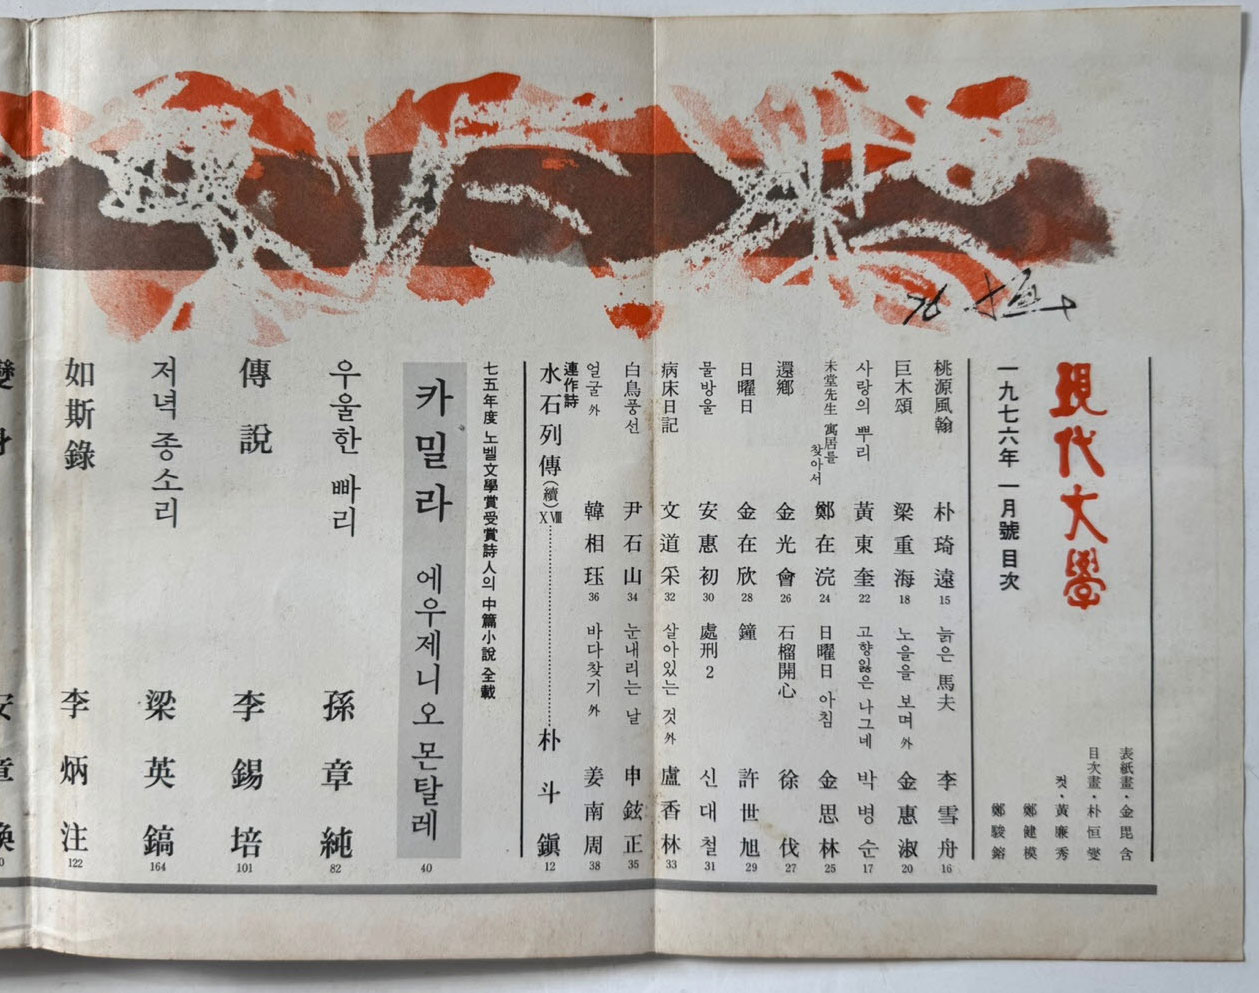 現代文學
表紙畫·金毘含
目次畫·朴恒燮
컷·黃廉秀
鄭健模
鄭駿鎔
一九七六年 一月號 目次
桃源風翰 朴琦遠 15
늙은 馬夫 李雪舟 16
巨木頌 梁重海 18
노을을 보며 外 金惠淑 20
사랑의 뿌리 黃東奎 22
고향잃은 나그네 박병순 17
未堂先生 寓居를 찾아서 鄭在浣 24
日曜日 아침 金思林 25
還鄕 金光會 26
石榴開心 徐伐 27
日曜日 金在欣 28
鐘 許世旭 29
물방울 安惠初 30
處刑 2 신대철 31
病床日記 文道采 32
살아있는 것 外 盧香林 33
白鳥풍선 尹石山 34
눈내리는 날 申鉉正 35
얼굴 外 韓相珏 36
바다찾기 外 姜南周 38
連作詩
水石列傳(續) XⅧ 朴斗鎭 12
七五年度 노벨文學賞受賞詩人의 中篇小說 全載
카밀라 에우제니오 몬탈레 40
우울한 빠리 孫章純 82
傳說 李錫培 101
저녁 종소리 梁英鎬 164
如斯錄 李炳注 122
變身 安章煥